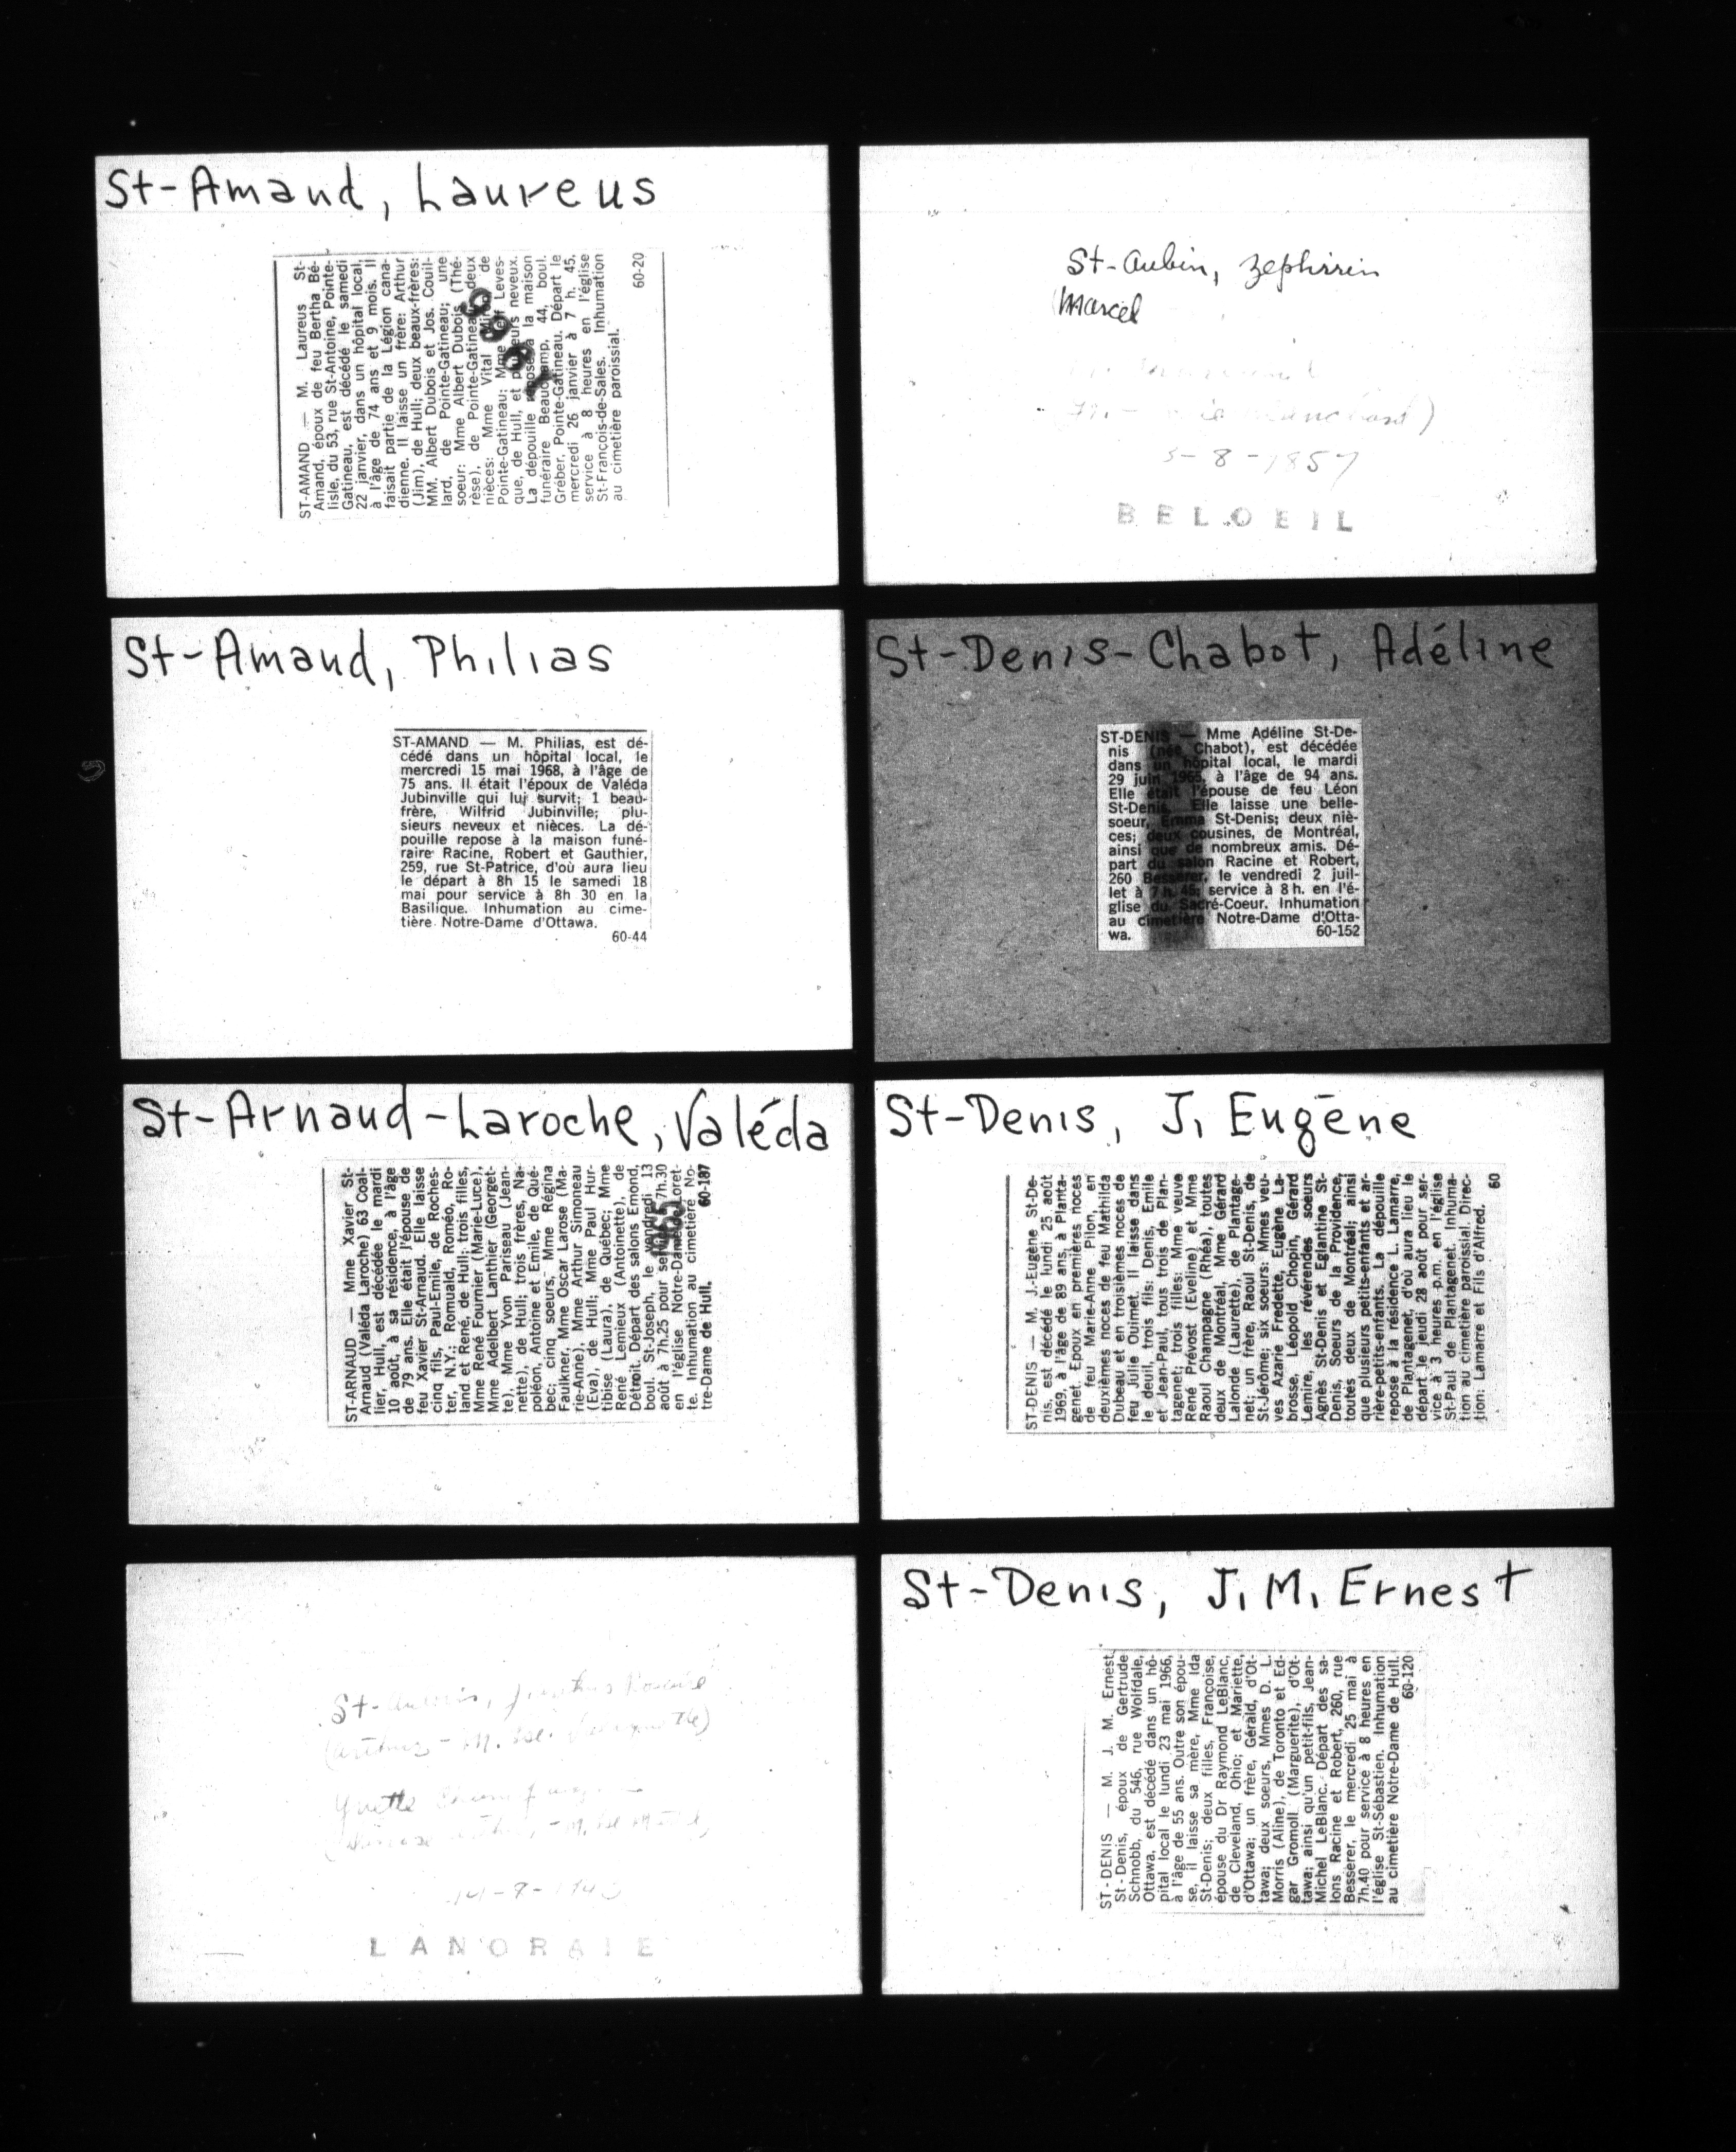 St-Amand, Laureus
ST-AMAND — M. Laureus St-
Amand, époux de feu Bertha Bé-
lisle, du 53, rue St-Antoine, Pointe-
Gatineau, est décédé le samedi
22 janvier, dans un hôpital local,
à l'âge de 74 ans et 9 mois. Il
faisait partie de la Légion cana-
dienne. Il laisse un frère: Arthur
(Jim), de Hull; deux beaux-frères:
MM. Albert Dubois et Jos. Couil-
lard, de Pointe-Gatineau; une
soeur: Mme Albert Dubois (Thé-
rèse), de Pointe-Gatineau; deux
nièces: Mme Vital de
Pointe-Gatineau; Mme Leves-
que, de Hull, et plusieurs neveux.
La dépouille repose à la maison
funéraire Beauchamp, 44, boul.
Gréber, Pointe-Gatineau. Départ le
mercredi 26 janvier à 7 h. 45,
service à 8 heures en l'église
St-François-de-Sales. Inhumation
au cimetière paroissial.
60-20
St-Amand, Philias
ST-AMAND — M. Philias, est dé-
cédé dans un hôpital local, le
mercredi 15 mai 1968, à l'âge de
75 ans. Il était l'époux de Valéda
Jubinville qui lui survit; 1 beau-
frère, Wilfrid Jubinville; plu-
sieurs neveux et nièces. La dé-
pouille repose à la maison funé-
raire Racine, Robert et Gauthier,
259, rue St-Patrice, d'où aura lieu
le départ à 8h 15 le samedi 18
mai pour service à 8h 30 en la
Basilique. Inhumation au cime-
tière Notre-Dame d'Ottawa.
60-44
St-Arnaud-Laroche, Valéda
ST-ARNAUD — Mme Xavier St-
Arnaud (Valéda Laroche) 63 Coal-
lier, Hull, est décédée le mardi
10 août, à sa résidence, à l'âge
de 79 ans. Elle était l'épouse de
feu Xavier St-Arnaud. Elle laisse
cinq fils, Paul-Emile, de Roches-
ter, N.Y.; Romuald, Roméo, Ro-
land et René, de Hull; trois filles,
Mme René Fournier (Marie-Luce),
Mme Adelbert Lanthier (Georget-
te), Mme Yvon Pariseau (Jean-
nette), de Hull; trois frères, Na-
poléon, Antoine et Emile, de Qué-
bec; cinq soeurs, Mme Régina
Faulkner, Mme Oscar Larose (Ma-
rie-Anne), Mme Arthur Simoneau
(Eva), de Hull; Mme Paul Hur-
tibise (Laura), de Québec; Mme
René Lemieux (Antoinette), de
Détroit. Départ des salons Emond,
boul. St-Joseph, le vendredi 13
août à 7h.25 pour service à 7h.30
en l'église Notre-Dame de Loret-
te. Inhumation au cimetière No-
tre-Dame de Hull.
60-187
St-
Yvette
LANORAIE
St-Aubin, Zephirin
Marcel
5-8-1857
BELOEIL
St-Denis-Chabot, Adéline
ST-DENIS — Mme Adéline St-De-
nis (née Chabot), est décédée
dans un hôpital local, le mardi
29 juin 1965, à l'âge de 94 ans.
Elle était l'épouse de feu Léon
St-Denis. Elle laisse une belle-
soeur, Emma St-Denis; deux niè-
ces; deux cousines, de Montréal,
ainsi que de nombreux amis. Dé-
part du salon Racine et Robert,
260 Besserer, le vendredi 2 juil-
let à 7 h. 45; service à 8 h. en l'é-
glise du Sacré-Coeur. Inhumation
au cimetière Notre-Dame d'Otta-
wa.
60-152
St-Denis, J. Eugène
ST-DENIS — M. J.-Eugène St-De-
nis, est décédé le lundi 25 août
1969, à l'âge de 89 ans, à Planta-
genet. Epoux en premières noces
de feu Marie-Anne Pilon, en
deuxièmes noces de feu Mathilda
Dubeau et en troisièmes noces de
feu Julie Ouimet. Il laisse dans
le deuil, trois fils: Denis, Emile
et Jean-Paul, tous trois de Plan-
tagenet; trois filles: Mme veuve
René Prévost (Eveline) et Mme
Raoul Champagne (Rhéa), toutes
deux de Montréal, Mme Gérard
Lalonde (Laurette), de Plantage-
net; un frère, Raoul St-Denis, de
St-Jérôme; six soeurs: Mmes veu-
ves Azarie Fredette, Eugène La-
brosse, Léopold Chopin, Gérard
Lemire, les révérendes soeurs
Agnès St-Denis et Eglantine St-
Denis, Soeurs de la Providence,
toutes deux de Montréal; ainsi
que plusieurs petits-enfants et ar-
rière-petits-enfants. La dépouille
repose à la résidence L. Lamarre,
de Plantagenet, d'où aura lieu le
départ le jeudi 28 août pour ser-
vice à 3 heures p.m. en l'église
St-Paul de Plantagenet. Inhuma-
tion au cimetière paroissial. Direc-
tion: Lamarre et Fils d'Alfred.
60
St-Denis, J. M. Ernest
ST-DENIS — M. J. M. Ernest
St-Denis, époux de Gertrude
Schnobb, du 546, rue Wolfdale,
Ottawa, est décédé dans un hô-
pital local le lundi 23 mai 1966,
à l'âge de 55 ans. Outre son épou-
se, il laisse sa mère, Mme Ida
St-Denis; deux filles, Françoise,
épouse du Dr Raymond LeBlanc,
de Cleveland, Ohio; et Mariette,
d'Ottawa; un frère, Gérald, d'Ot-
tawa; deux soeurs, Mmes D. L.
Morris (Aline), de Toronto et Ed-
gar Gromoll (Marguerite), d'Ot-
tawa; ainsi qu'un petit-fils, Jean-
Michel LeBlanc. Départ des sa-
lons Racine et Robert, 260, rue
Besserer, le mercredi 25 mai à
7h.40 pour service à 8 heures en
l'église St-Sébastien. Inhumation
au cimetière Notre-Dame de Hull.
60-120